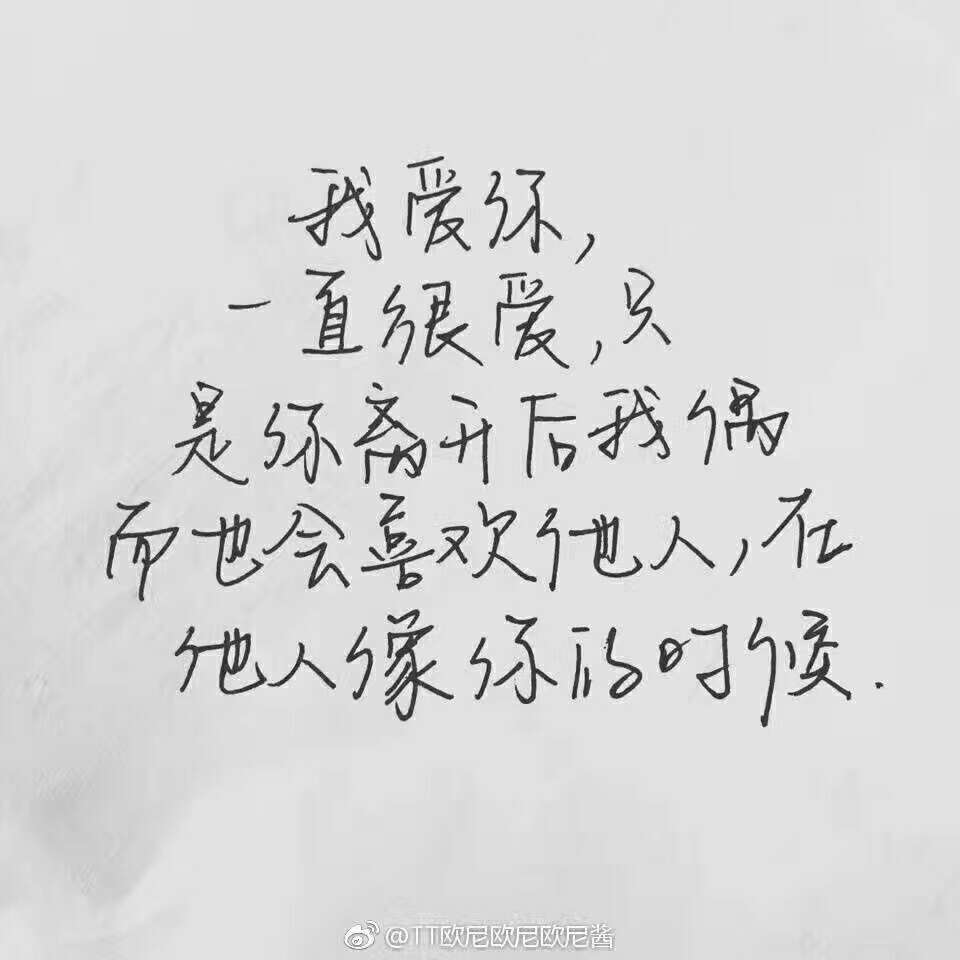 我爱你,
一直很爱,只
是你离开后我偶
而也会喜欢他人,在
他人像你的时候.
@TT欧尼欧尼欧尼酱